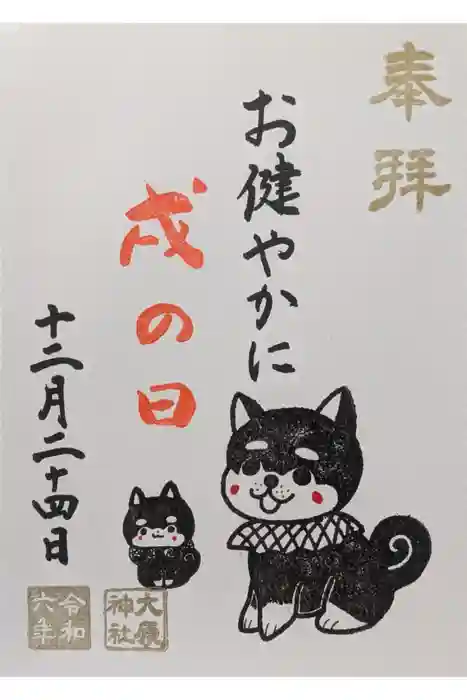 奉拝
お健やかに
戌の日
十二月二十四日
大原神社
令和六年